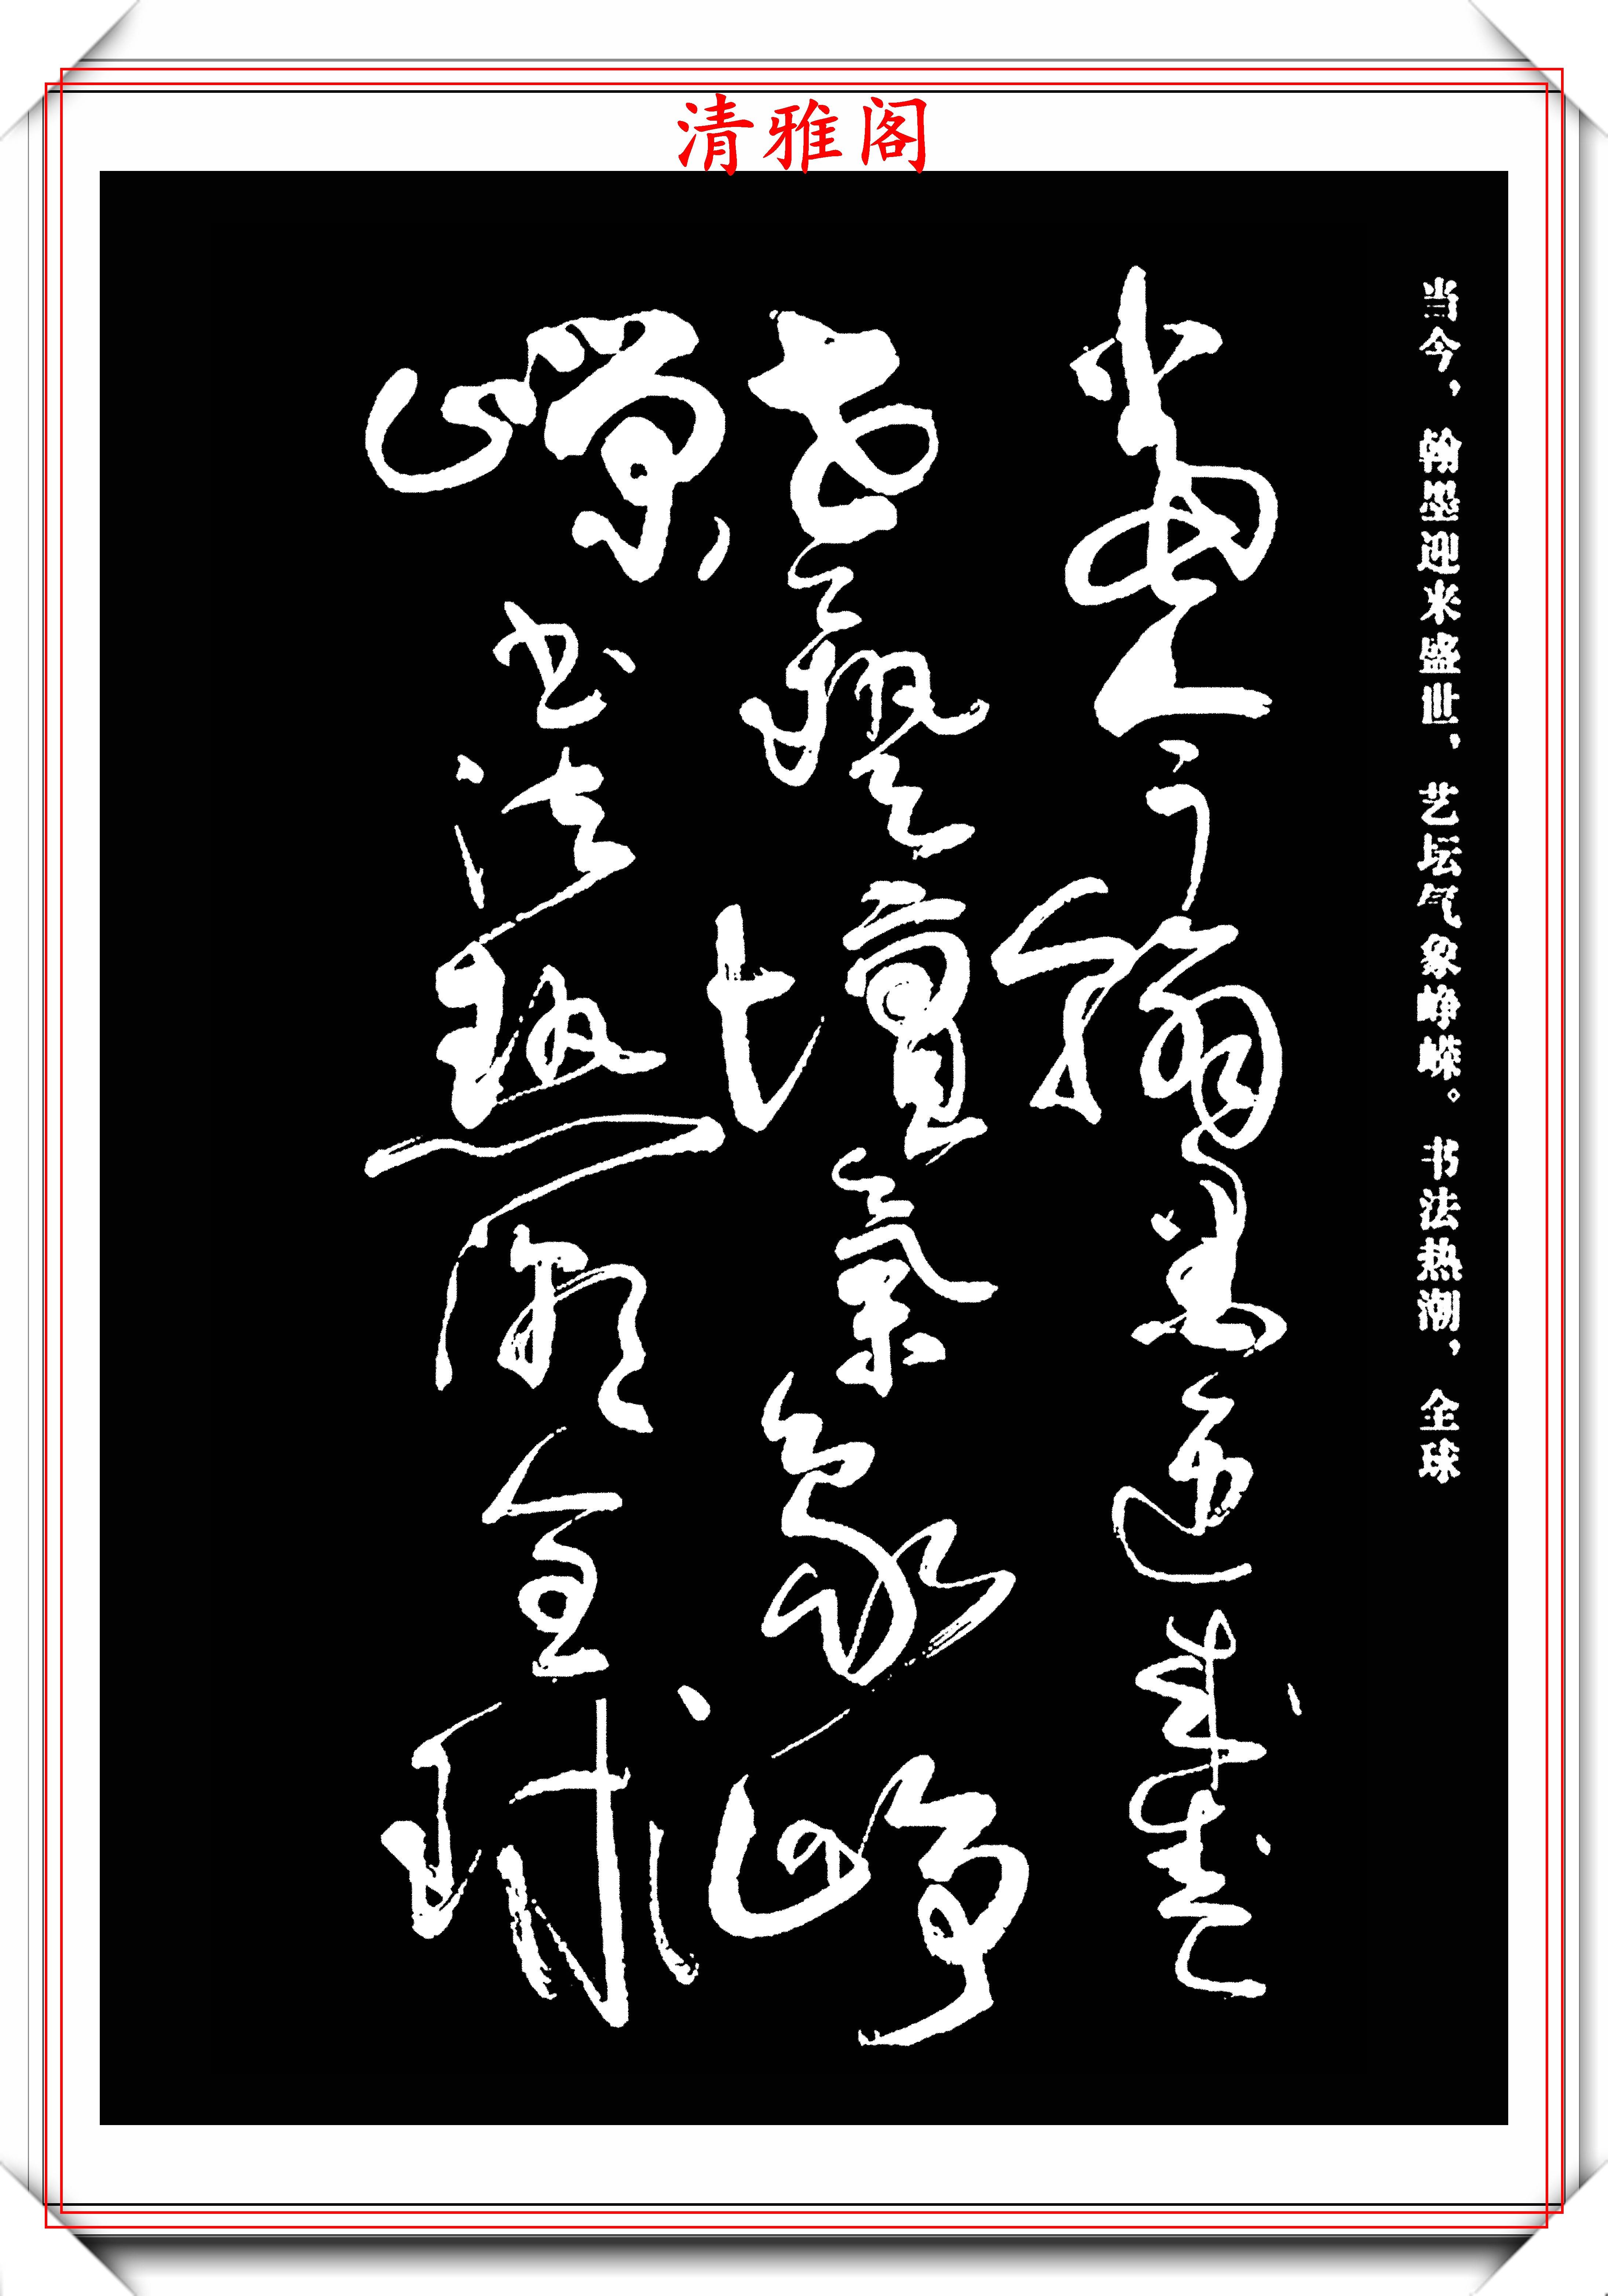 清雅阁
当今，翰墨迎来盛世，艺坛气象峥嵘。书法热潮，全球
當今翰墨迎来盛
世藝壇氣象崢
嶸書法熱潮全球